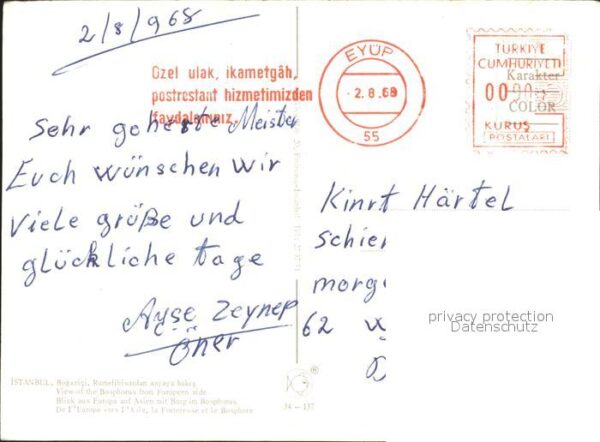 2/8/968
Özel ulak, ikametgâh,
postrestant hizmetimizden
faydalanınız.
EYÜP
2.8.68
55
TÜRKİYE
CUMHURİYETİ
Karakter
COLOR
KURUŞ
POSTALARI
Sehr geherte Meister
Euch wünschen wir
viele größe und
glückliche tage
Ayşe Zeynep
Öner
Kinrt Härtel
schier
morg
62 w
privacy protection
Datenschutz
İSTANBUL, Boğaziçi, Rumelihisarından anyaya bakış
View of the Bosphorus from European side
Blick aus Europa auf Asien mit Burg im Bosphorus
De l'Europa vers l'Asie, la Forteresse et le Bosphore
34 - 137